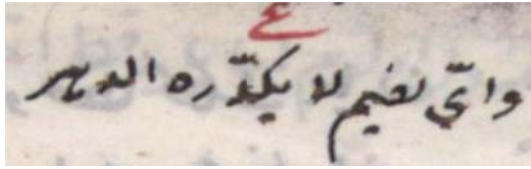 ع
وايّ نعيم لا يكدّره الدهر